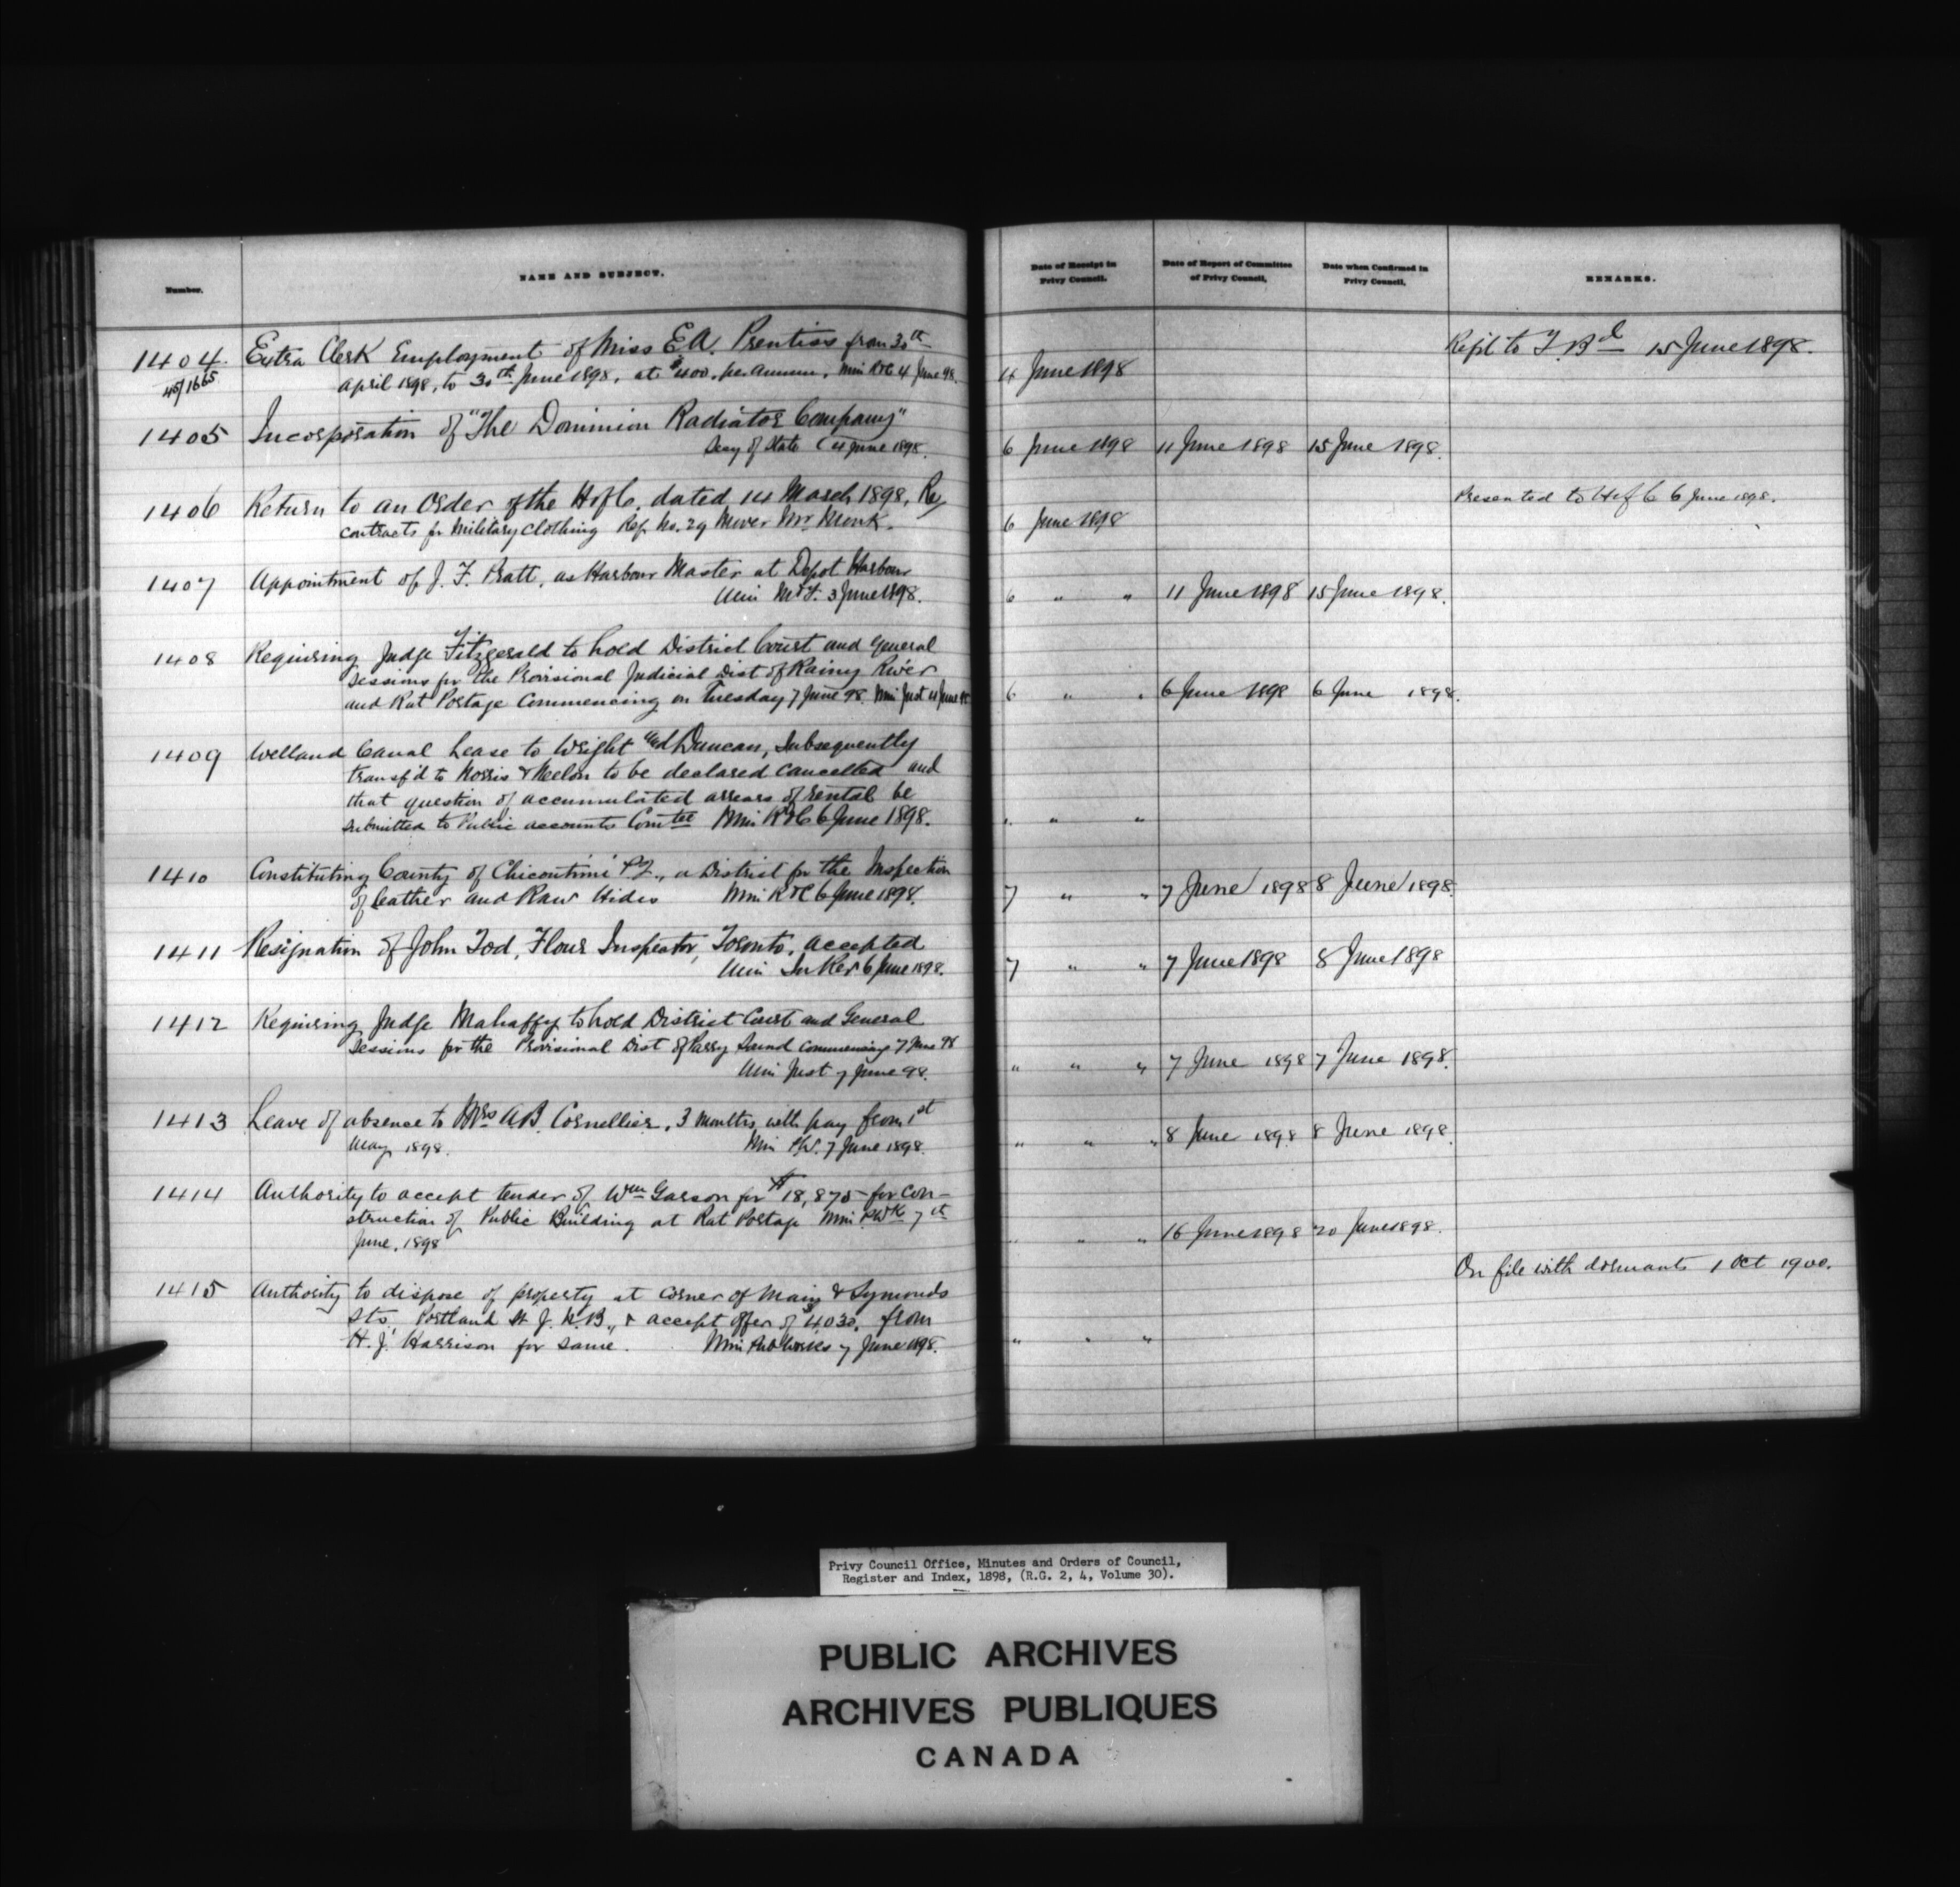 Number.
NAME AND SUBJECT.
Date of Receipt in
Privy Council.
Date of Report of Committee
of Privy Council,
Date when Confirmed in
Privy Council,
REMARKS.
1404. Extra Clerk Employment of Miss E A. Prentiss from 30th
45/1665 April 1898, to 30th June 1898, at $400. per annum, Min R&C 4 June 98.
4 June 1898
Ref'd to T. Bd 15 June 1898.
1405 Incorporation of "The Dominion Radiator Company"
Secy of State (4 June 1898.
6 June 1898 11 June 1898 15 June 1898.
1406 Return to an Order of the H of C. dated 14 March 1898, Re,
contracts for Military Clothing Ref. No. 29 Mover Mr Monk.
6 June 1898
Presented to H of C 6 June 1898.
1407 Appointment of J. F. Pratt, as Harbour Master at Depot Harbour
Min M&F. 3 June 1898.
6 " " 11 June 1898 15 June 1898.
1408 Requiring Judge Fitzgerald to hold District Court and General
Sessions for the Provisional Judicial Dist of Rainy River
and Rat Portage Commencing on Tuesday 7 June 98. Min Just 4 June 98
6 " " 6 June 1898 6 June 1898.
1409 Welland Canal Lease to Wright and Duncan, Subsequently
transf'd to Norris & Neelon to be declared cancelled and
that question of accumulated arrears of rental be
submitted to Public accounts Comtee Min R&C 6 June 1898.
" " "
1410 Constituting County of Chicoutimi P.Q., a District for the Inspection
of Leather and Raw Hides Min R&C 6 June 1898.
7 " " 7 June 1898 8 June 1898.
1411 Resignation of John Tod, Flour Inspector, Toronto, accepted
Min In Rev 6 June 1898.
7 " " 7 June 1898 8 June 1898
1412 Requiring Judge Mahaffy to hold District Court and General
Sessions for the Provisional Dist of Parry Sound commencing 7 June 98
Min Just 7 June 98.
" " " 7 June 1898 7 June 1898.
1413 Leave of absence to Mrs A B. Cornellier, 3 months with pay from 1st
May 1898. Min P.W. 7 June 1898.
" " " 8 June 1898 8 June 1898.
1414 Authority to accept tender of Wm Garson for $18,875- for con-
struction of Public Building at Rat Portage Min P Wks 7th
June, 1898
" " " 16 June 1898 20 June 1898.
1415 Authority to dispose of property at corner of Main & Symonds
Sts. Portland St J. N.B., & accept offer of $4030. from
H. J. Harrison for same. Min Pub Works 7 June 1898.
" " "
On file with dormants 1 Oct 1900.
Privy Council Office, Minutes and Orders of Council,
Register and Index, 1898, (R.G. 2, 4, Volume 30).
PUBLIC ARCHIVES
ARCHIVES PUBLIQUES
CANADA